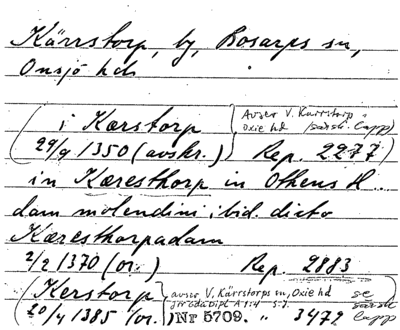 Kärrstorp, by, Bosarps sn,
Onsjö hd
(i Kærstorp } Avser V. Kärrstorp i Oxie hd /särsk. lapp)
29/9 1350 (avskr.) Rep. 2277)
in Kæresthorp in Othens H..
dam molendini ibid. dicto
Kæresthorpadam
2/2 1370 (or.) Rep. 2883
(Kerstorp } avser V. Kärrstorps sn, Oxie hd se särsk.
20/4 1385 (or.) Nr 5709. " 3472 lapp)